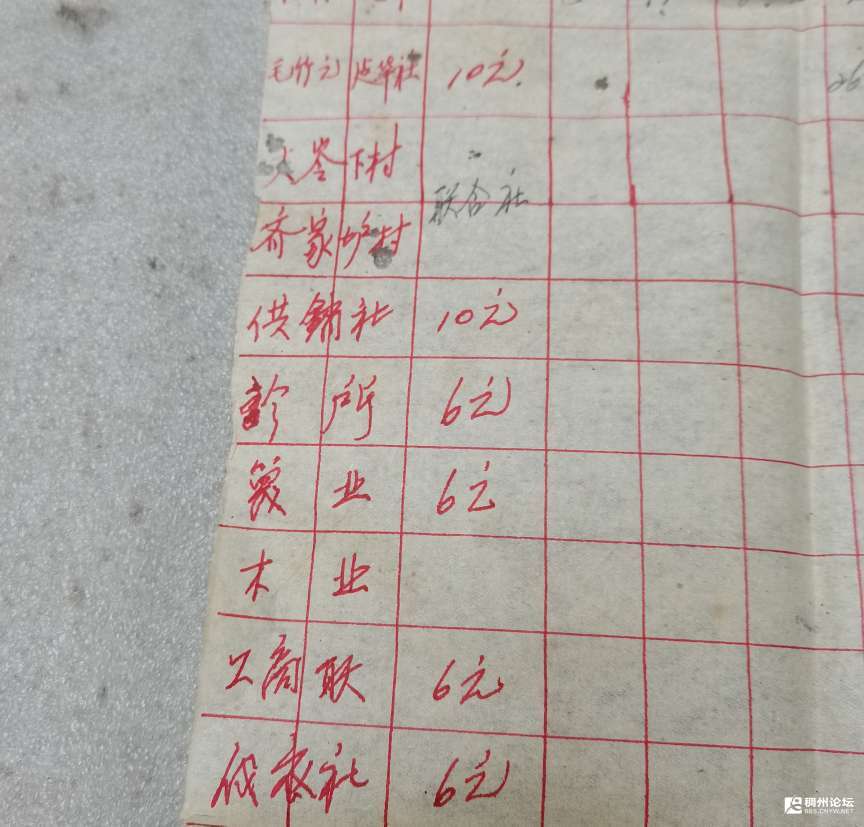 毛竹元 社 10元.
大岺下村
联合社
齐家炉村
供銷社 10元
診所 6元
業业 6元
木业
工商联 6元
社 6元
稠州论坛
BBS.CNYW.NET